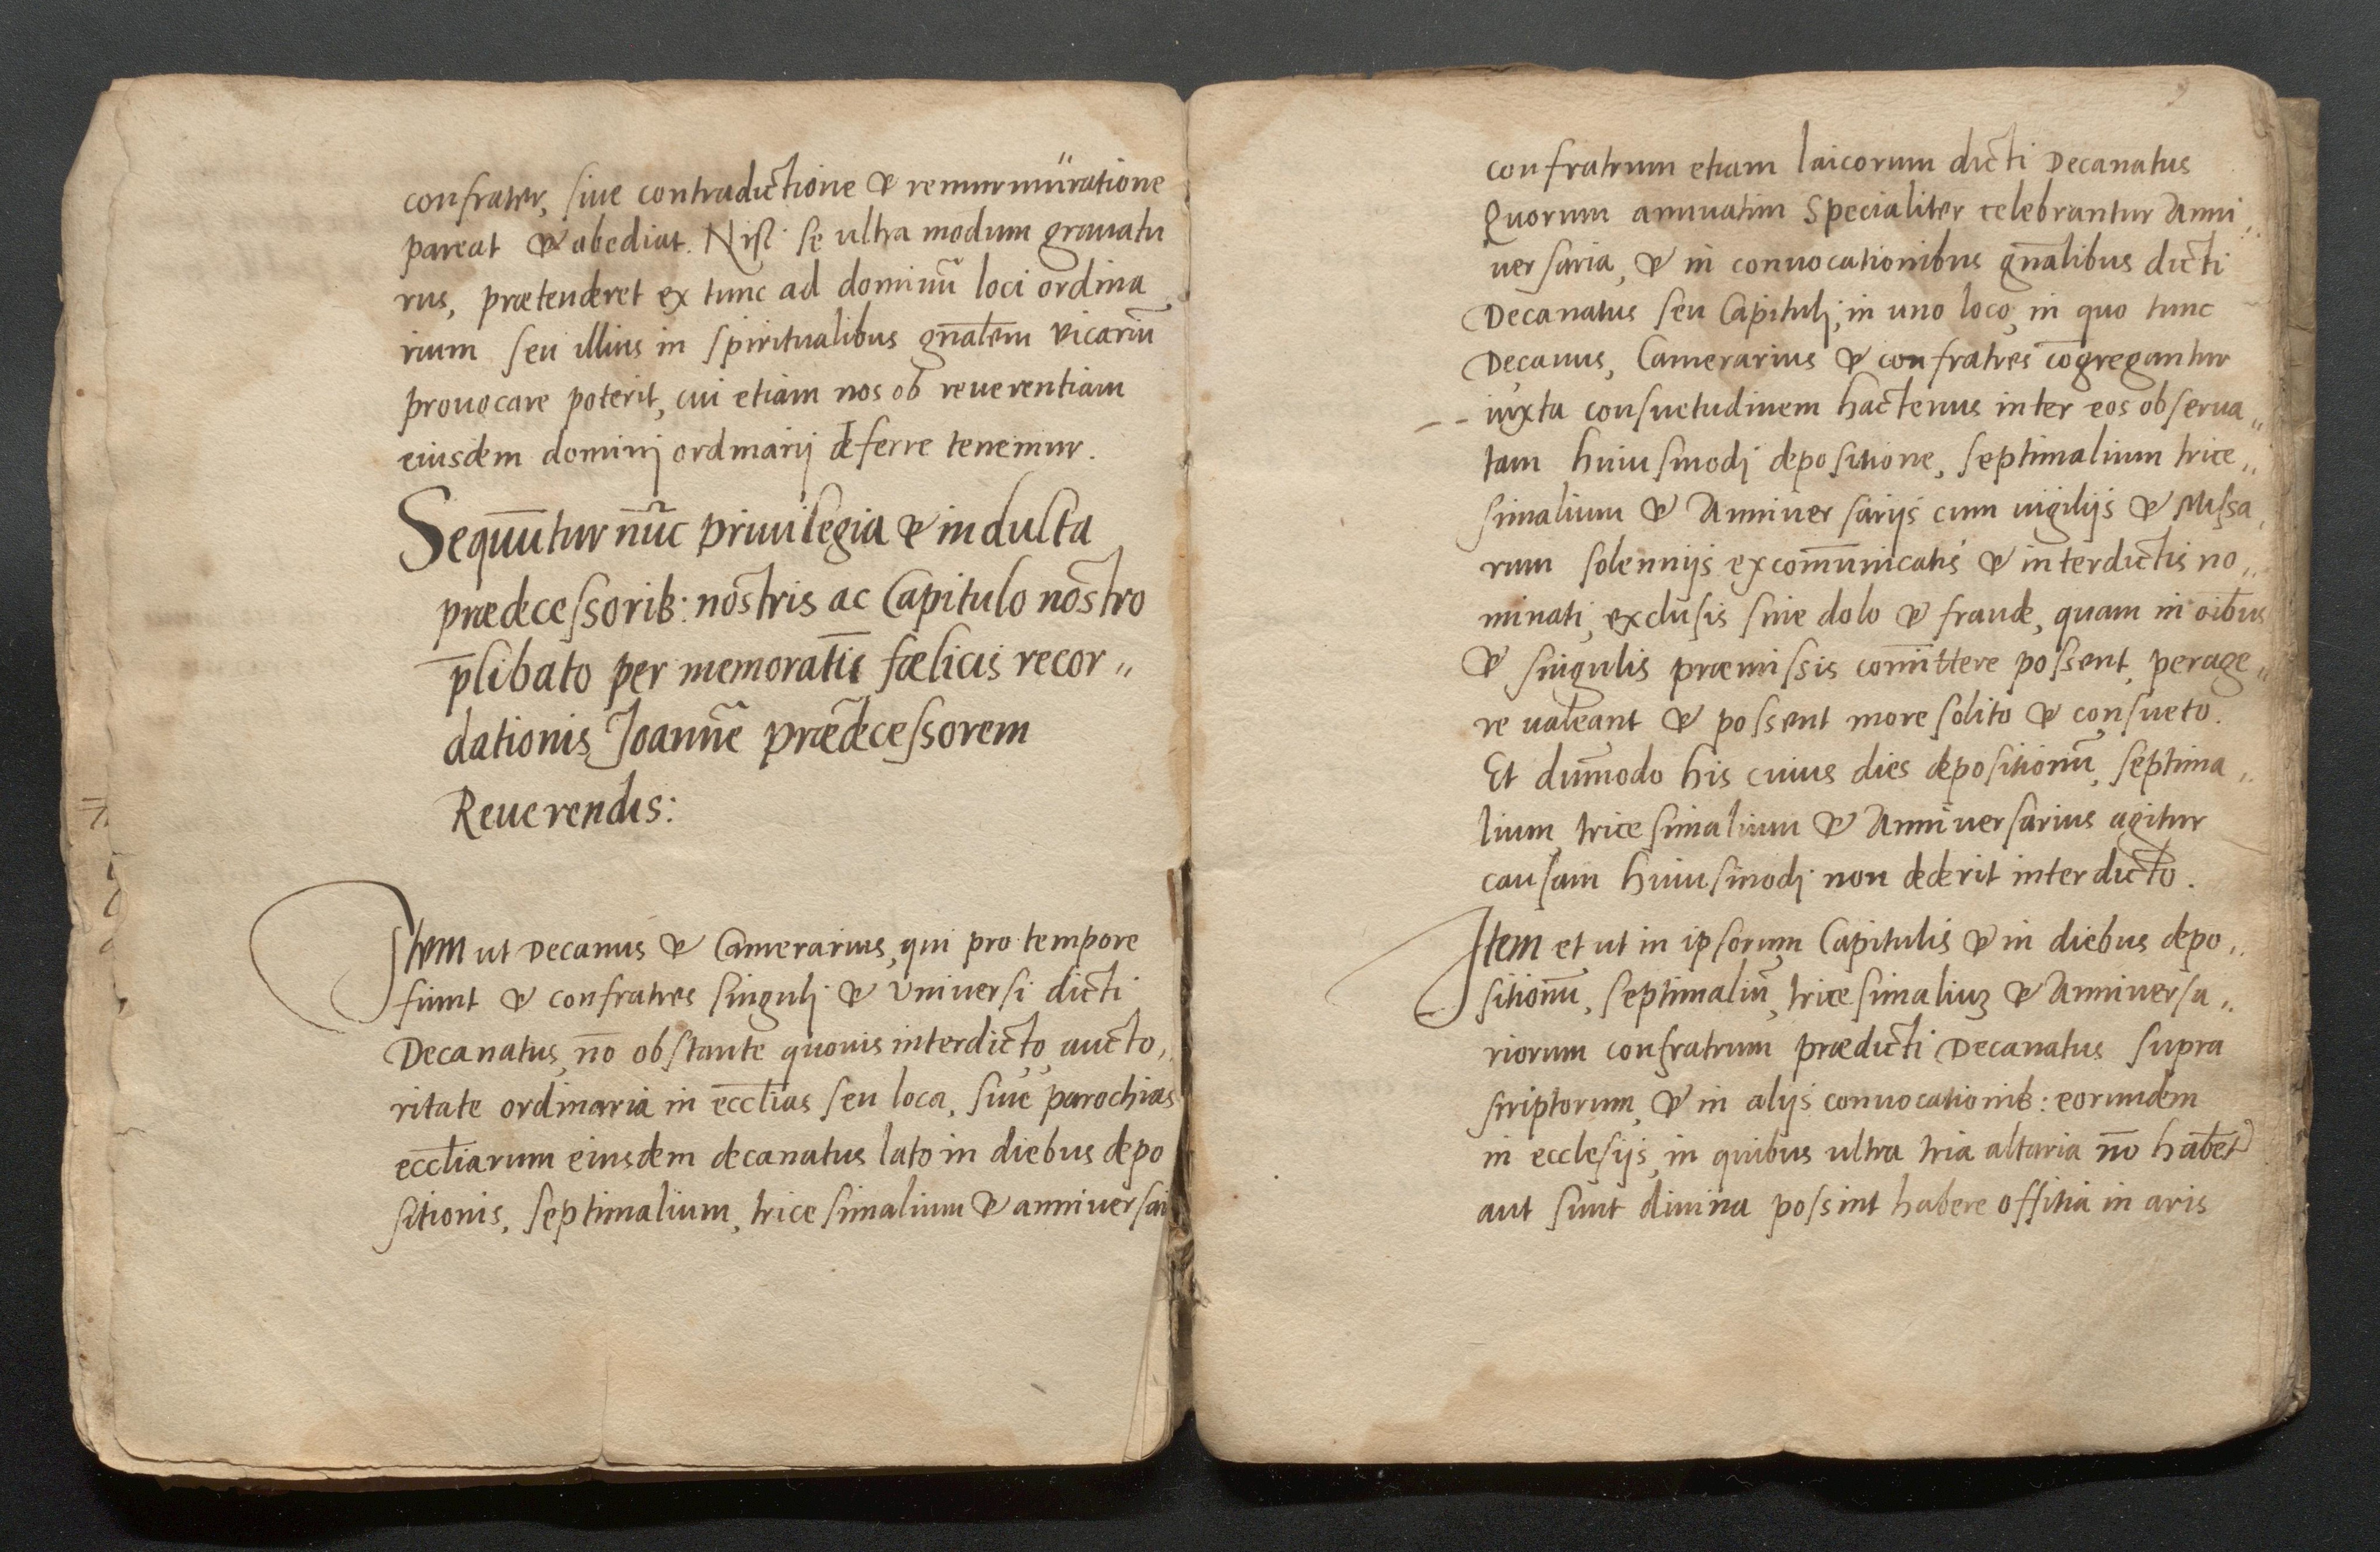 confrater, siue contradictione & remurmuratione
pareat & abediat. Nisi se ultra modum grauatu
rus, prætenderet ex tunc ad dominũ loci ordina
rium seu illius in spiritualibus gn̄alem vicariũ
prouocare poterit, cui etiam nos ob reuerentiam
eiusdem dominj ordinarij deferre tenemur.
Sequūtur nūc priuilegia & indulta
prædecessorib: nostris ac Capitulo nostro
p̄libato per memoratū fœlicis recor„
dationis Joannē prædecessorem
Reuerendis:
Item ut Decanus & Camerarius, qui pro tempore
fiunt & confratres singulj & Vniuersi dicti
Decanatus, nō obstante quouis interdicto, aucto,
ritate ordinaria in ecclīas seu loca, siue parochias
ecclīarum eiusdem decanatus lato in diebus depo
sitionis, septimalium, tricesimalium & anniuersai
9
confratrum etiam laicorum dicti Decanatus
Quorum annuatim Specialiter celebrantur Anni„
uersaria, & in conuocationibus gn̄alibus dicti
Decanatus seu Capitulj, in uno loco, in quo tunc
Decanus, Camerarius & confratres cōgregantur
iuxta consuetudinem hactenus inter eos obserua„
tam huiusmodj depositione, septimalium trice„
simalium & Anniuersarijs cum uigilijs & Missa,
rum solennijs excomūnicatis & interdictis no„
minati, exclusis sine dolo & fraude, quam in oībus
& singulis præmissis comīttere possent, perage„
re ualeant & possent more solito & consueto.
Et dum̄odo his cuius dies depositionũ, septima„
lium, tricesimalium & Anniuersarius agitur
causam huiusmodj non dederit interdicto.
Item et ut in ipsorum Capitulis & in diebus depo„
sitionũ, septimaliũ, tricesimaliuʒ & Anniuersa„
riorum confratrum prædicti Decanatus supra
scriptorum, & in alijs conuocationib: eorundem
in ecclesijs, in quibus ultra tria altaria nō habet
aut sunt diuina possint habere offitia in aris